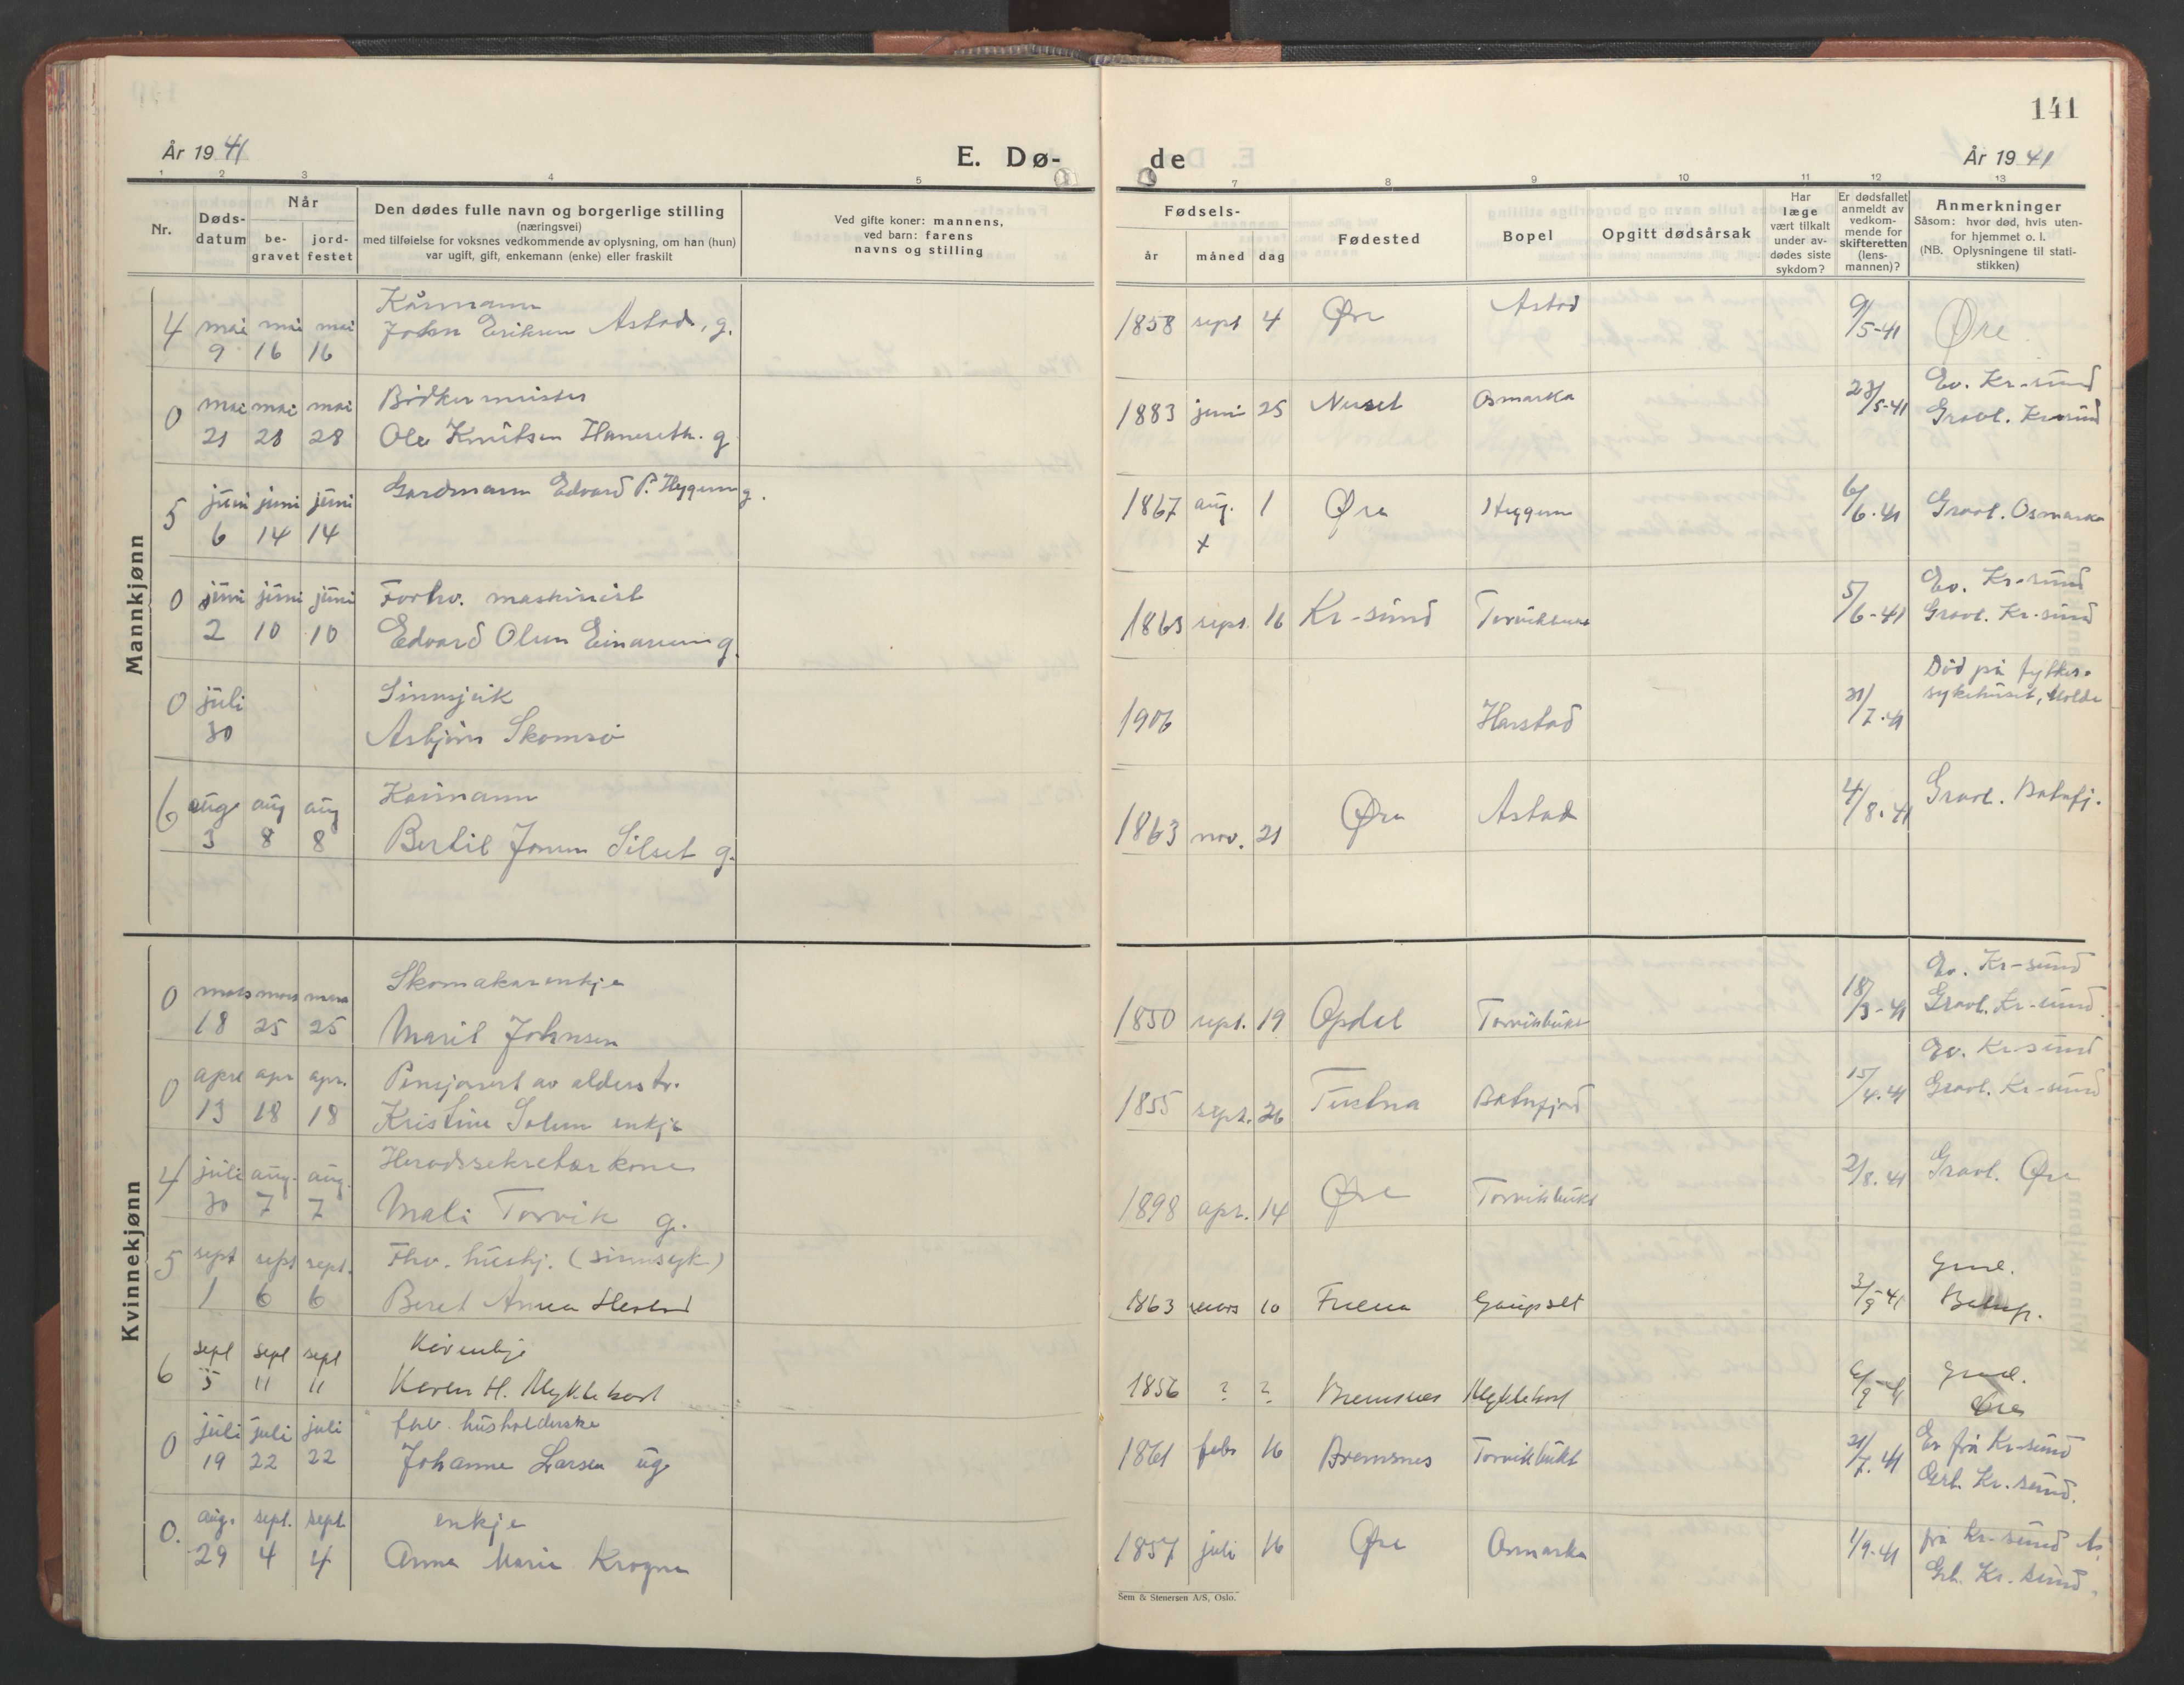 141
År 1941
E. Dø-
de
År 1941
1 2 3 4 5 7 8 9 10 11 12 13
Nr.
Døds-
datum
Når
be-
gravet
jord-
festet
Den dødes fulle navn og borgerlige stilling
(næringsvei)
med tilføielse for voksnes vedkommende av oplysning, om han (hun)
var ugift, gift, enkemann (enke) eller fraskilt
Ved gifte koner: mannens,
ved barn: farens
navns og stilling
Fødsels-
år måned dag
Fødested
Bopel
Opgitt dødsårsak
Har
læge
vært tilkalt
under av-
dødes siste
sykdom?
Er dødsfallet
anmeldt av
vedkom-
mende for
skifteretten
(lens-
mannen)?
Anmerkninger
Såsom: hvor død, hvis uten-
for hjemmet o. l.
(NB. Oplysningene til stati-
stikken)
Mannkjønn
Kårmann
4 mai mai mai John Eriksen Astad, g. 1858 sept 4 Øre Astad 9/5-41 Øre
9 16 16
mai mai mai Bødkermeister Ev. Kr-sund
0 21 28 28 Ole Knutsen Hanseth. g 1883 juni 25 Neset Osmarka 23/5-41 Gravl. Kr-sund
5 juni juni juni Gardmann Edvard P. Heggem g. 1867 aug. 1 Øre Heggem 6/6-41 Gravl. Osmarka
6 14 14 x
0 juni juni juni Forhv. maskinist Ev. Kr-sund
2 10 10 Edvard Olsen Einarsen g. 1863 sept. 16 Kr-sund 5/6-41 Gravl. Kr-sund
0 juli Sinnsjuk Død på fylkes-
30 Asbjørn Skomsø 1906 Harstad 31/7-41 sykehuset, Molde
6 aug aug aug Kårmann Gravl. Batnfj.
3 8 8 Bertil Jonsen Silset g. 1863 nov. 21 Øre Astad 4/8-41
Kvinnekjønn
0 mars mars mars Skomakarenkje Ev. Kr-sund
18 25 25 Marit Johnsen 1850 sept. 19 Opdal Torvikbukt 18/3-41 Gravl. Kr-sund.
0 april apr apr. Pensjonert av alderstr. Ev. Kr-sund
13 18 18 Kristine Solem enkje 1855 sept. 26 Tustna Batnfjord 15/4-41 Gravl. Kr-sund
4 juli aug. aug. Heradssekretær kone
30 7 7 Mali Torvik g. 1898 apr. 14 Øre Torvikbukt 2/8-41 Gravl. Øre
5 sept sept sept. Fhv. hushj. (sinnsyk) Gravl.
1 6 6 Beret Anna 1863 mars 10 Fræna Gaupset 3/9-41 Batnfj.
sept sept sept Gravl.
6 5 11 11 Karen H. Myklebost 1856 ? ? Bremsnes Myklebost Øre
0 juli juli juli fhv. husholderske Ev frå Kr-sund
19 22 22 Johanne Larsen ug 1861 febr 16 Bremsnes Torvikbukt 21/7-41 Grl. Kr.sund.
0. aug. sept. sept. enkje frå Kr-sund
29 4 4 Anna Marie Krogne 1857 juli 16 Øre Osmarka 1/9-41 Grl. Kr.sund.
Sem & Stenersen A/S, Oslo.